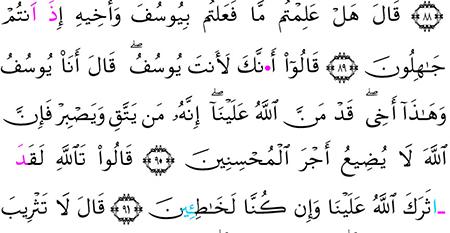 ﴿٨٨﴾ قَالَ هَلْ عَلِمْتُم مَّا فَعَلْتُم بِيُوسُفَ وَأَخِيهِ إِذَ اَنتُمْ
جَٰهِلُونَ ﴿٨٩﴾ قَالُوٓاْ أَ•نَّكَ لَأَنتَ يُوسُفُۖ قَالَ أَنَا۠ يُوسُفُ
وَهَٰذَآ أَخِيۖ قَدْ مَنَّ اَللَّهُ عَلَيْنَآۖ إِنَّهُۥ مَن يَتَّقِ وَيَصْبِرْ فَإِنَّ
اَللَّهَ لَا يُضِيعُ أَجْرَ اَلْمُحْسِنِينَ ﴿٩٠﴾ قَالُواْ تَاللَّهِ لَقَدَ
اٰثَرَكَ اَللَّهُ عَلَيْنَا وَإِن كُنَّا لَخَٰطِـِٕينَ ﴿٩١﴾ قَالَ لَا تَثْرِيبَ